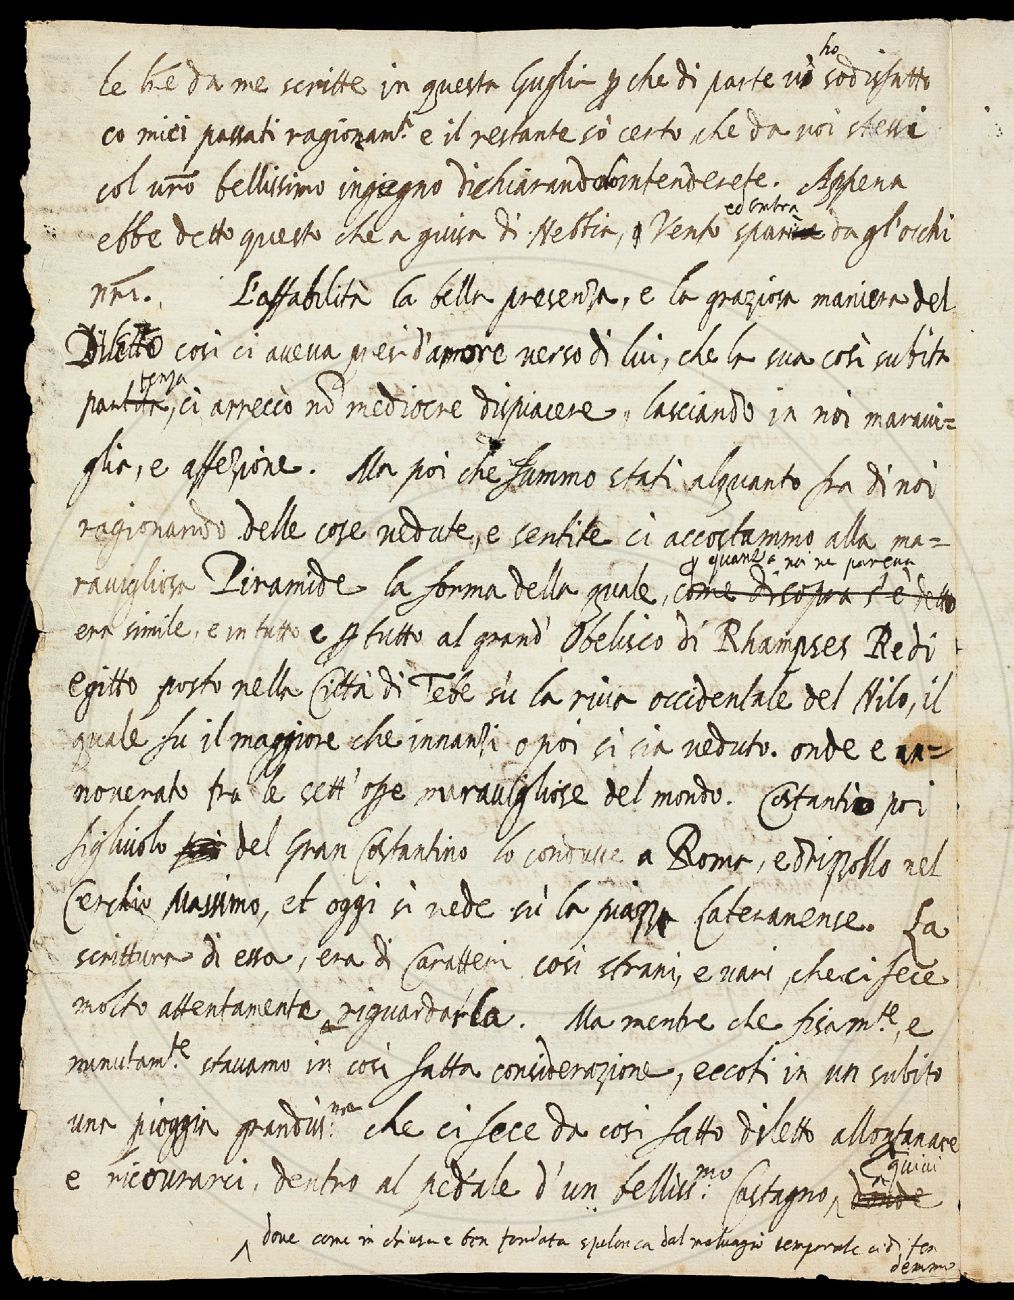 le bne da me scritte in questa Guglia p che di parte vi ho sodisfatto
co miei passati ragionam.ti e il restante so certo che da voi stessi
col vro bellissimo ingiegno dichiarandolo intenderete. Appena
ebbe detto questo che a guisa di Nebbia, o Vento ed ombra spari da gl'occhi
nri. L'affabilità la bella presenza, e la graziosa maniera del
Diletto così ci aveva presi d'amore verso di lui, che la sua così subita
partenza, ci arrecò nō mediocre dispiacere, lasciando in noi maravi=
glia, e affezione. Ma poi che fummo stati alquanto fra di noi
ragionando delle cose vedute, e sentite ci accostammo alla ma=
ravigliosa Piramide la forma della quale, p quanto a noi ne pareva come di sopra s'è detto
era simile, e in tutto e p tutto al grand' Obelisco di Rhampses Re di
egitto posto nella Città di Tebe sù la riva occidentale del Nilo, il
quale fu il maggiore che innanzi o poi si sia veduto. onde e an=
noverato fra le sett' ope maravigliose del mondo. Costantio poi
figliuolo del Gran Costantino lo condusse a Roma, e drizzollo nel
Cerchio Massimo, et oggi si vede sù la piazza Lateranense. La
scrittura di essa, era di Caratteri così strani, e vari, che ci fece
molto attentamente riguardarla. Ma mentre che fisam.te, e
minutam.te stavamo in così fatta considerazione, eccoti in un subito
una pioggia grandiss.ma che ci fece da così fatto diletto allontanare
e ricourarci, dentro al pedale d'un belliss.mo Castagno, quivi donde
dove come in chiusa e ben fondata spelonca dal malvagio temporale ci difen
demmo